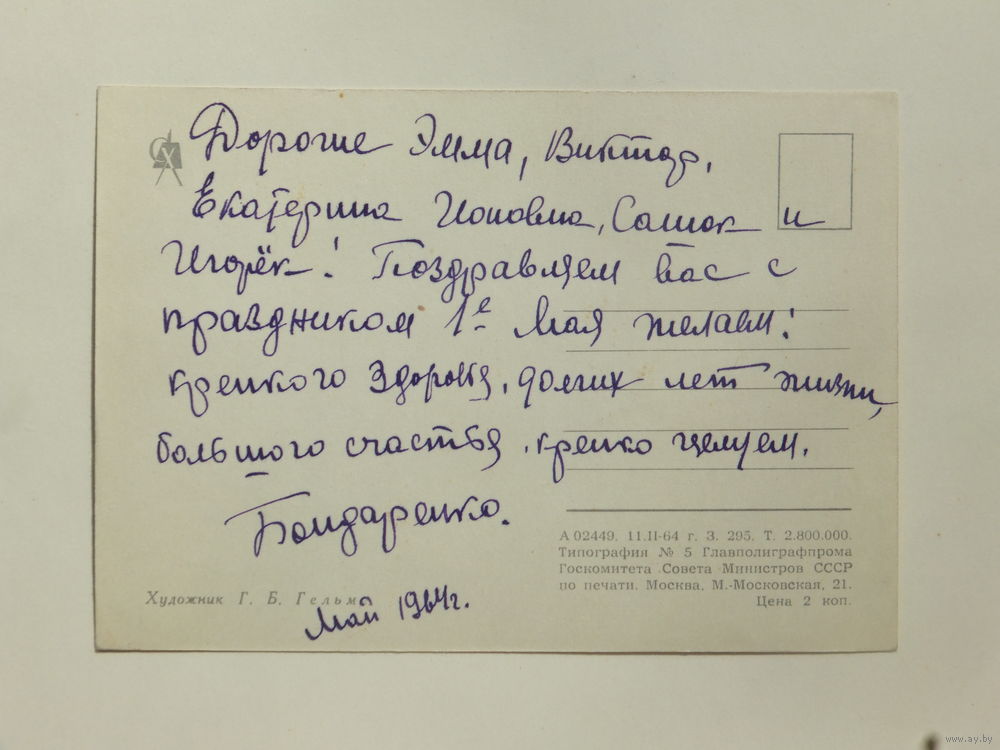 Дорогие Эмма, Виктор,
Екатерина Ионовна, Сашок и
Игорёк! Поздравляем вас с
праздником 1е Мая желаем:
крепкого здоровья, долгих лет жизни,
большого счастья. крепко целуем.
Бондаренко.
Май 1964г.
Художник Г. Б. Гельм
А 02449. 11.II-64 г. З. 295. Т. 2.800.000.
Типография № 5 Главполиграфпрома
Госкомитета Совета Министров СССР
по печати. Москва, М.-Московская, 21.
Цена 2 коп.
www.ay.by